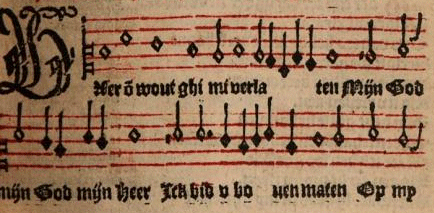 WAer õ wout ghi mi verla ten Mijn God
mijn God mijn Heer Ick bid v bo uen maten Op my